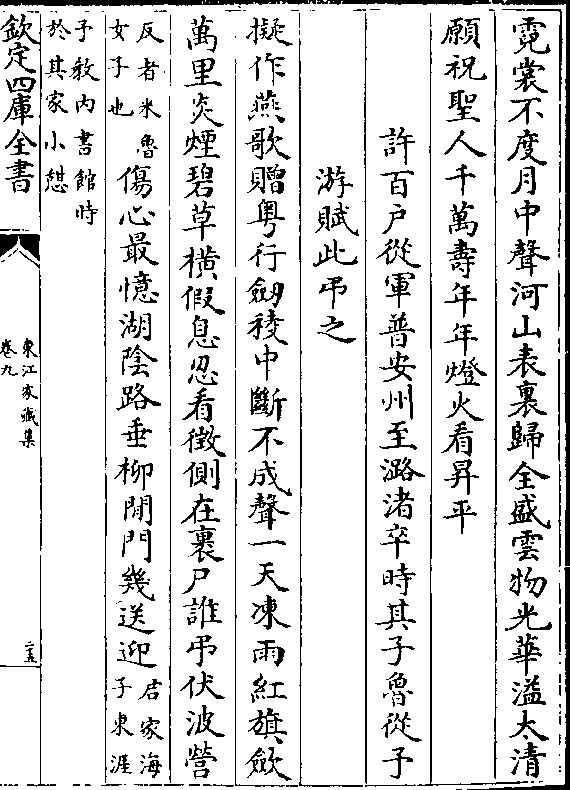 霓裳不度月中聲河山表裏歸全盛雲物光華溢太清
願祝聖人千萬壽年年燈火看昇平
許百户從軍普安州至潞渚卒時其子魯從予
游賦此弔之
擬作燕歌贈粤行劒稜中斷不成聲一天凍雨紅旗歛
萬里炎煙碧草横假息忍看徴側在裹尸誰弔伏波營
反者米魯
女子也
傷心最憶湖陰路垂柳閒門幾送迎
君家海
子東涯
予敎内書館時
於其家小憇
欽定四庫全書
東江家藏集
卷九
二五